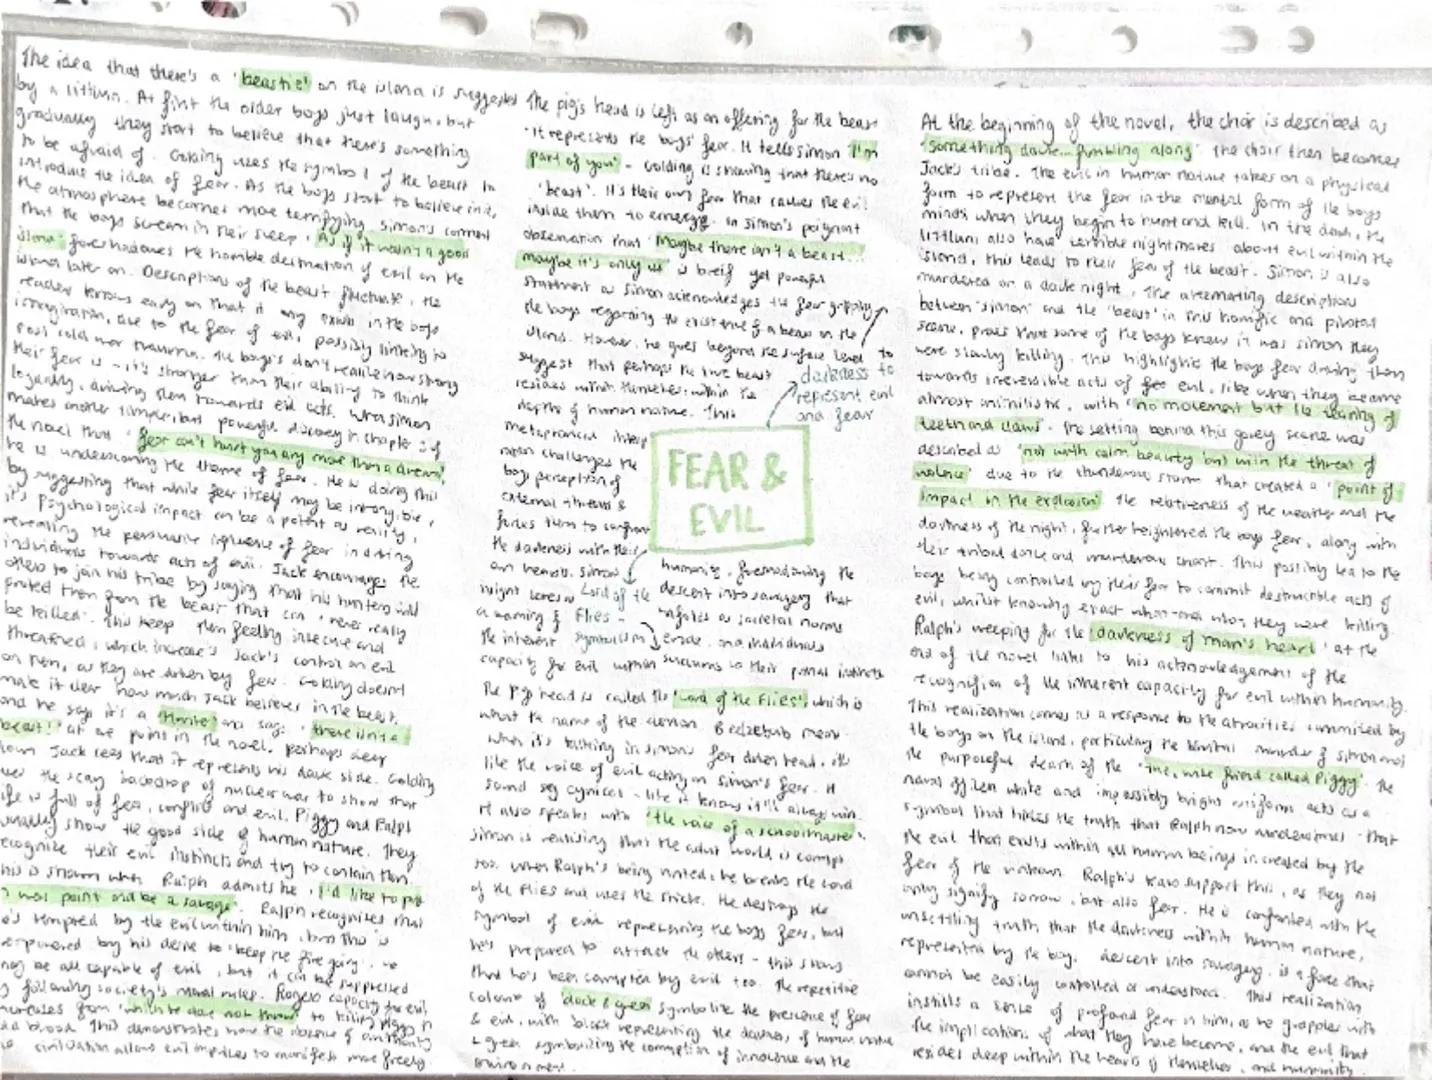 The idea that there's a 'beastie' on the island is suggested
by a littlun. At first the older boys just laugh, but
gradually they start to believe that there's something
to be afraid of. Golding uses the symbol of the beast to
introduce the idea of fear. As the boys start to believe in it,
the atmosphere becomes more terrifying. Simon's comment
that the boys scream in their sleep, 'As if it wasn't a good
island' foreshadows the horrible destruction of evil on the
island later on. Descriptions of the beast fluctuate, the
reader knows early on that it only exists in the boys
imagination, due to the fear of evil, possibly linking to
post cold war trauma. The boys don't realise how strong
their fear is - it's stronger than their ability to think
logically, driving them towards evil acts. When Simon
makes another simple, but powerful discovery in chapter 5 of
the novel that 'fear can't hurt you any more than a dream'
he is underscoring the theme of fear. He is doing this
by suggesting that while fear itself may be intangible,
it's psychological impact can be a potent as reality,
revealing the persuasive influence of fear in driving
individuals towards acts of evil. Jack encourages the
others to join his tribe by saying that his hunters will
protect them from the beast that can 'never really
be killed'. This keep them feeling insecure and
threatened, which increase's Jack's control an evil
on them, as they are driven by fear. Golding doesn't
make it clear how much Jack believes in the beast,
and he says it's a 'hunter' and say: 'there isn't a
beast!' at one point in the novel, perhaps deep
down Jack sees that it represents his dark side. Golding
uses the scary backdrop of nuclear war to show that
life is full of fear, conflict and evil. Piggy and Ralph
usually show the good side of human nature. They
recognise their evil instincts and try to contain them
this is shown when Ralph admits he 'I'd like to put
on war paint and be a savage'. Ralph recognises that
he's tempted by the evil within him, but this is
overpowered by his desire to 'keep the fire going', we
may be all capable of evil, but it can be suppressed
by following society's moral rules. Rogers capacity for evil
increases from 'which he dare not throw' to killing Piggy in
cold blood. This demonstrates how the absence of authority
civilization allows evil impulses to manifest more freely
The pig's head is left as an offering for the beast
- it represents the boys' fear. It tells Simon 'I'm
part of you' - Golding is showing that there's no
'beast'. It's their own fear that causes the evil
inside them to emerge. In Simon's poignant
observation that 'Maybe there isn't a beast...
maybe it's only us' is breif yet powerful
statment as Simon acknowledges the fear gripping
the boys regarding the existence of a beast on the
island. However, he goes beyond the surface level to
suggest that perhaps the true beast
resides within themselves: within the
depths of human nature. This
metaphorical interp
retation challenges the
boys perception of
external threats &
forces them to confront
the darkness with their
own hearts. Simon's
insight serves as
a warning of
the inherent
capacity for evil within
humanity, foreshadowing the
descent into savagery that
unfolds as societal norms
erode, and individuals
succumb to their primal instincts
darkness to
represent evil
and fear
FEAR &
EVIL
Lord of the
Flies -
symbolism
The pig head is called the 'Lord of the Flies', which is
what the name of the demon Beelzebub mean
When it's talking in Simon's head, it's
like the voice of evil acting on Simon's fear. It
sound cynical - like it knows it'll always win.
It also speaks with 'the voice of a schoolmaster',
Simon is realising that the adult world is corrupt
too. When Ralph's being hunted, he breaks the Lord
of the Flies and uses the stick. He destroys the
symbol of evil representing the boys fear, but
he's prepared to attack the others - this shows
that he's been corrupted by evil too. The repetitive
colour of 'black & green' symbolise the presence of fear
& evil, with black representing the darkness of human nature
& green symbolizing the corruption of innocence and the
environment.
At the beginning of the novel, the choir is described as
'something dark... fumbling along' the choir then becomes
Jack's tribe. The evil in human nature takes on a physical
form to represent the fear in the mental form of the boys
minds when they begin to hunt and kill. In the dark, the
littluns also have terrible nightmares about evil within the
island, this leads to their fear of the beast. Simon is also
murdered on a dark night. The alternating description
between 'Simon' and the 'beast' in this horrific and pivotal
scene, proves that some of the boys knew it was Simon they
were slowly killing. This highlights the boys fear driving them
towards irreversible acts of evil, like when they become
almost animalistic, with 'no movement but the tearing of
teeth and claws'. The setting behind this gorey scene was
described as 'not with calm beauty but with the threat of
violence' due to the thunderous storm that created a 'point of
impact in the explosion'. The relativeness of the weather and the
darkness of the night, further heightened the boys fear, along with
their tribal dance and murderous chant. This possibly lea to the
boys being controlled by their fear to commit destructible acts of
evil, whilst knowing exact what and who, they were killing.
Ralph's weeping for the 'darkness of man's heart' at the
end of the novel links to his acknowledgement of the
recognition of the inherent capacity for evil within humanity.
This realization comes as a response to the atrocities committed by
the boys on the island, particularly the brutal murder of Simon and
the purposeful death of the 'true, wise friend called Piggy'. The
naval officer's white and impossibly bright uniform acts as a
symbol that hides the truth that Ralph now understands - that
the evil that exists within all human beings is created by the
fear of the unknown. Ralph's tears support this, as they not
only signify sorrow, but also fear. He is confronted with the
unsettling truth that the darkness within human nature,
represented by the boy, descent into savagery, is a force that
cannot be easily controlled or understood. This realization
instills a sense of profound fear in him, as he grapples with
the implications of what they have become, and the evil that
resides deep within the hearts of themselves, and humanity.